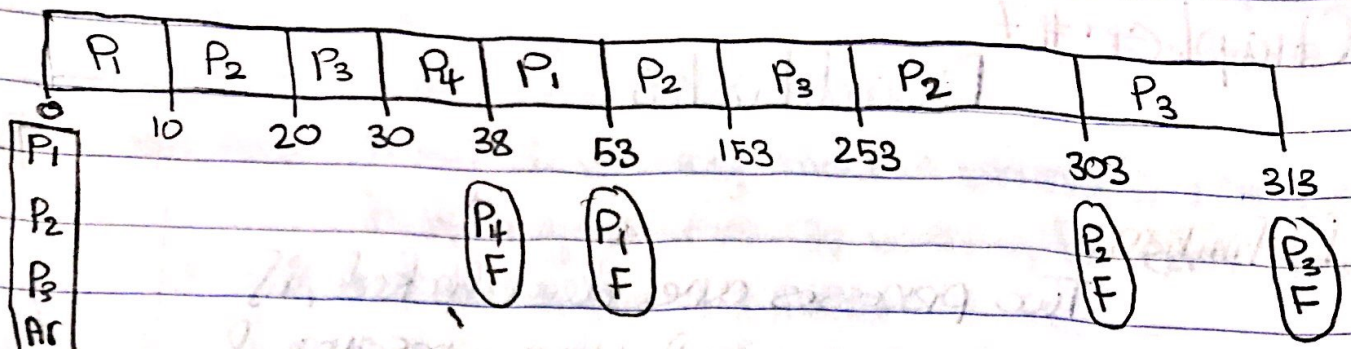 P1 P2 P3 P4 P1 P2 P3 P2 P3
0 10 20 30 38 53 153 253 303 313
P1
P2
P3
Ar
P4 F
P1 F
P2 F
P3 F